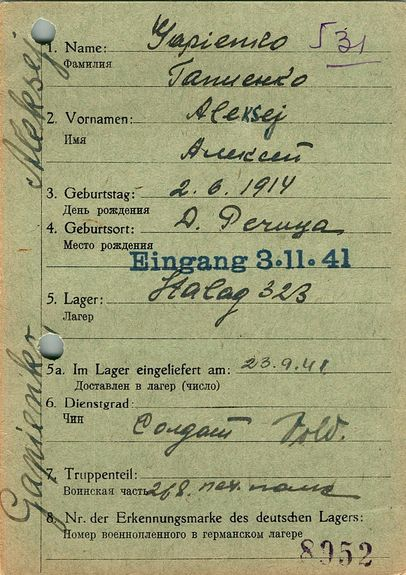 1. Name: Gapienko 531
Фамилия Гапиенко
2. Vornamen: Aleksej
Имя Алексей
3. Geburtstag: 2.6.1914
День рождения
4. Geburtsort: Д. Речица
Место рождения
Eingang 3.11.41
5. Lager: Stalag 323
Лагер
5a. Im Lager eingeliefert am: 23.9.41
Доставлен в лагер (число)
6. Dienstgrad:
Чин Солдат Sold.
7. Truppenteil:
Воинская часть 268. пех. полк
8. Nr. der Erkennungsmarke des deutschen Lagers:
Номер военнопленного в германском лагере
8952
Gapienko Aleksej